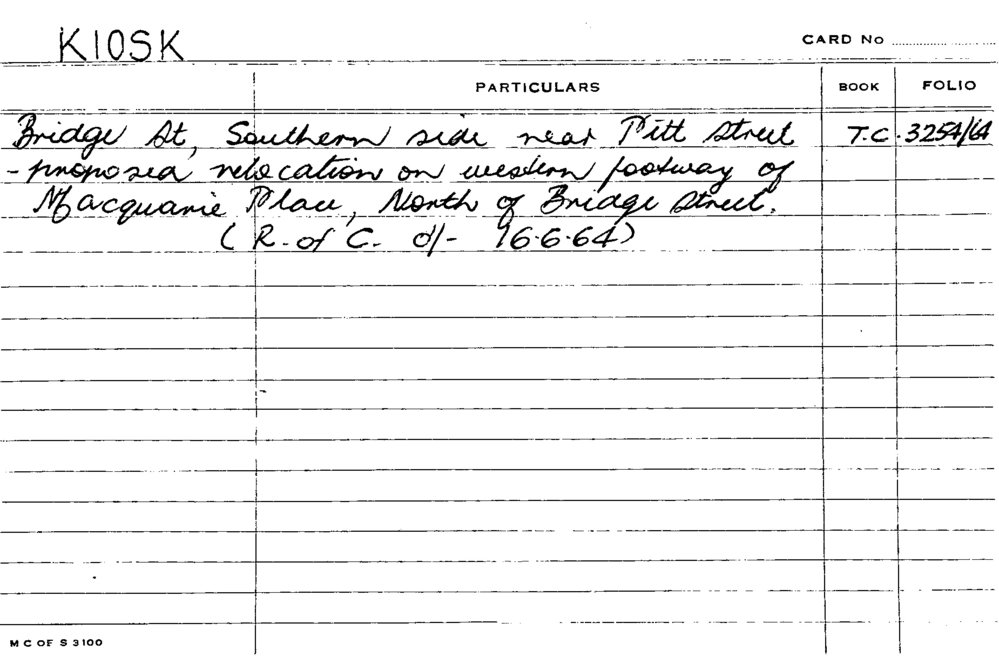 KIOSK CARD No
PARTICULARS BOOK FOLIO
Bridge St, Southern side near Pitt Street T.C. 3254/64
- proposed relocation on western footway of
Macquarie Place, North of Bridge Street.
(R. of C. d/- 16.6.64)
M C OF S 3100